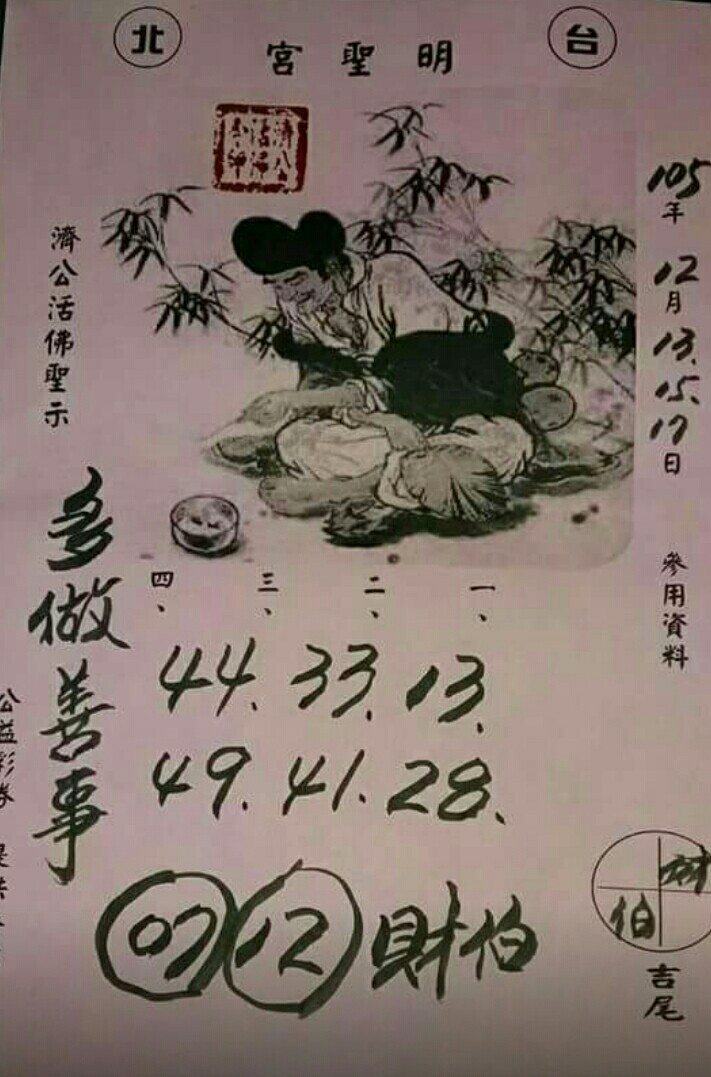 台北
明聖宮
濟公活佛
105年12月13.15.17日
參用資料
濟公活佛聖示
一、二、三、四、
13. 33. 44.
28. 41. 49.
多做善事
07 12 財伯
財
伯
吉尾
公益彩券